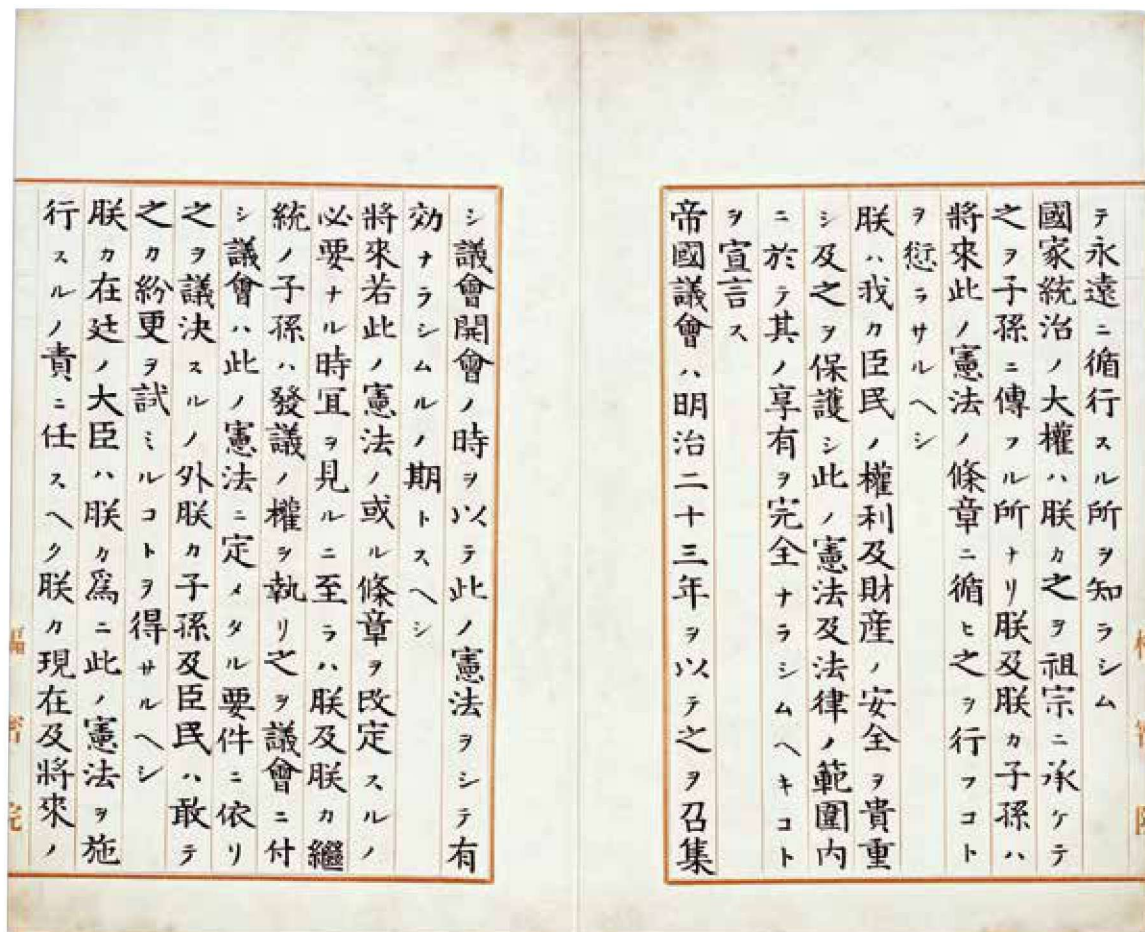 テ永遠ニ循行スル所ヲ知ラシム
國家統治ノ大權ハ朕カ之ヲ祖宗ニ承ケテ
之ヲ子孫ニ傳フル所ナリ朕及朕カ子孫ハ
將來此ノ憲法ノ條章ニ循ヒ之ヲ行フコト
ヲ愆ラサルヘシ
朕ハ我カ臣民ノ權利及財産ノ安全ヲ貴重
シ及之ヲ保護シ此ノ憲法及法律ノ範圍内
ニ於テ其ノ享有ヲ完全ナラシムヘキコト
ヲ宣言ス
帝國議會ハ明治二十三年ヲ以テ之ヲ召集
シ議會開會ノ時ヲ以テ此ノ憲法ヲシテ有
効ナラシムルノ期トスヘシ
將來若此ノ憲法ノ或ル條章ヲ改定スルノ
必要ナル時宜ヲ見ルニ至ラハ朕及朕カ繼
統ノ子孫ハ發議ノ權ヲ執リ之ヲ議會ニ付
シ議會ハ此ノ憲法ニ定メタル要件ニ依リ
之ヲ議決スルノ外朕カ子孫及臣民ハ敢テ
之カ紛更ヲ試ミルコトヲ得サルヘシ
朕カ在廷ノ大臣ハ朕カ爲ニ此ノ憲法ヲ施
行スルノ責ニ任スヘク朕カ現在及將來ノ